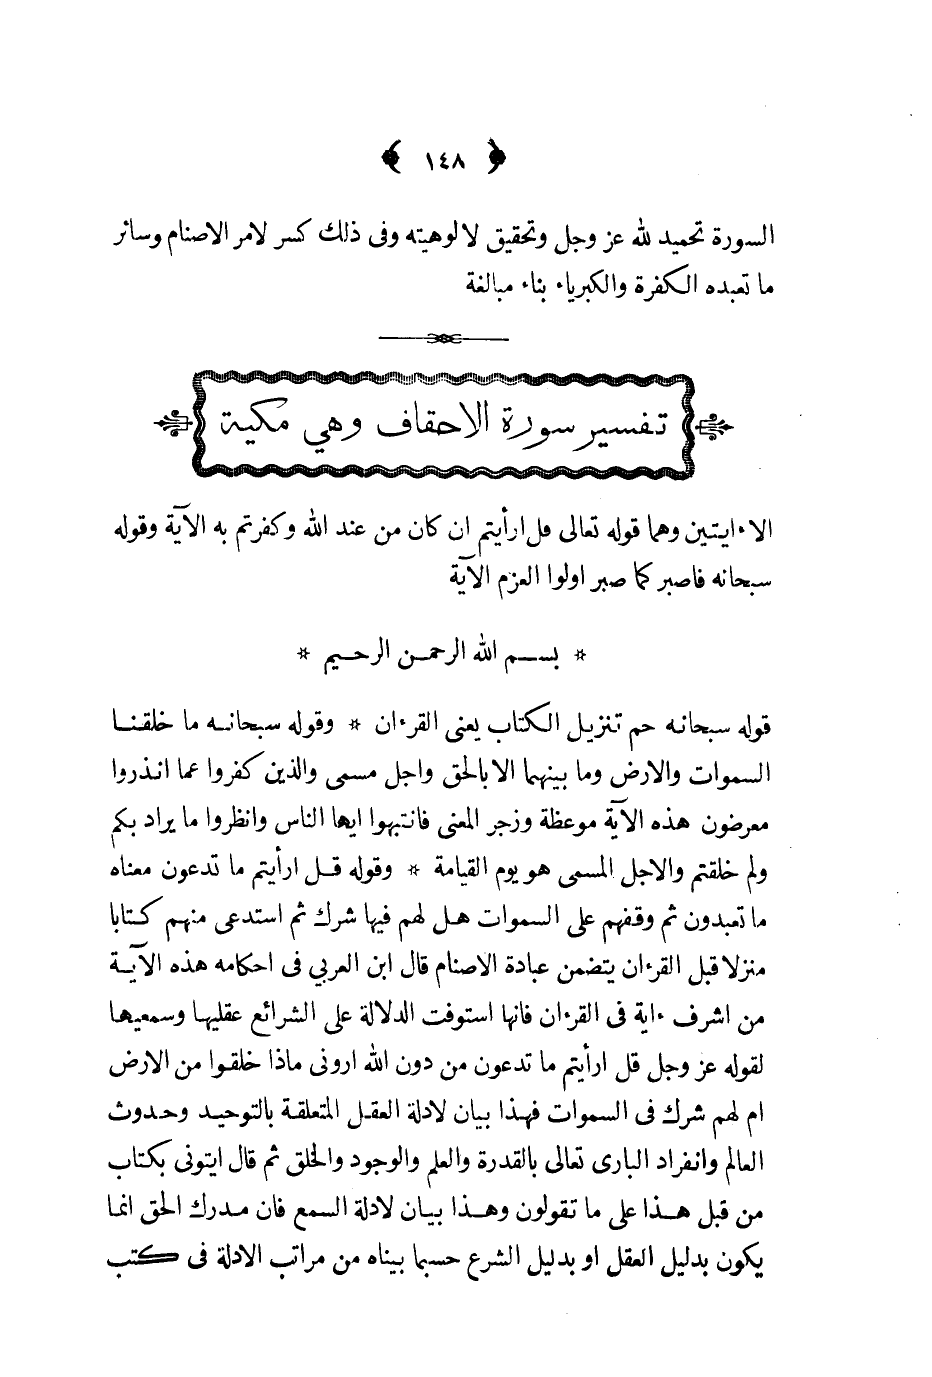 ﴿ ١٤٨ ﴾
السورة تحميد لله عز وجل وتحقيق لالوهيته وفى ذلك كسر لامر الاصنام وسائر
ما تعبده الكفرة والكبرياء بناء مبالغة
تفسير سورة الاحقاف وهي مكية
الا ءايتين وهما قوله تعالى قل ارأيتم ان كان من عند الله وكفرتم به الآية وقوله
سبحانه فاصبر كما صبر اولوا العزم الآية
* بسم الله الرحمن الرحيم *
قوله سبحانه حم تنزيل الكتاب يعنى القرءان * وقوله سبحانه ما خلقنا
السموات والارض وما بينهما الا بالحق واجل مسمى والذين كفروا عما انذروا
معرضون هذه الآية موعظة وزجر المعنى فانتبهوا ايها الناس وانظروا ما يراد بكم
ولم خلقتم والاجل المسمى هو يوم القيامة * وقوله قل ارأيتم ما تدعون معناه
ما تعبدون ثم وقفهم على السموات هل لهم فيها شرك ثم استدعى منهم كتابا
منزلا قبل القرءان يتضمن عبادة الاصنام قال ابن العربي فى احكامه هذه الآية
من اشرف ءاية فى القرءان فانها استوفت الدلالة على الشرائع عقليها وسمعيها
لقوله عز وجل قل ارأيتم ما تدعون من دون الله ارونى ماذا خلقوا من الارض
ام لهم شرك فى السموات فهذا بيان لادلة العقل المتعلقة بالتوحيد وحدوث
العالم وانفراد البارى تعالى بالقدرة والعلم والوجود والخلق ثم قال ايتونى بكتاب
من قبل هذا على ما تقولون وهذا بيان لادلة السمع فان مدرك الحق انما
يكون بدليل العقل او بدليل الشرع حسبما بيناه من مراتب الادلة فى كتب